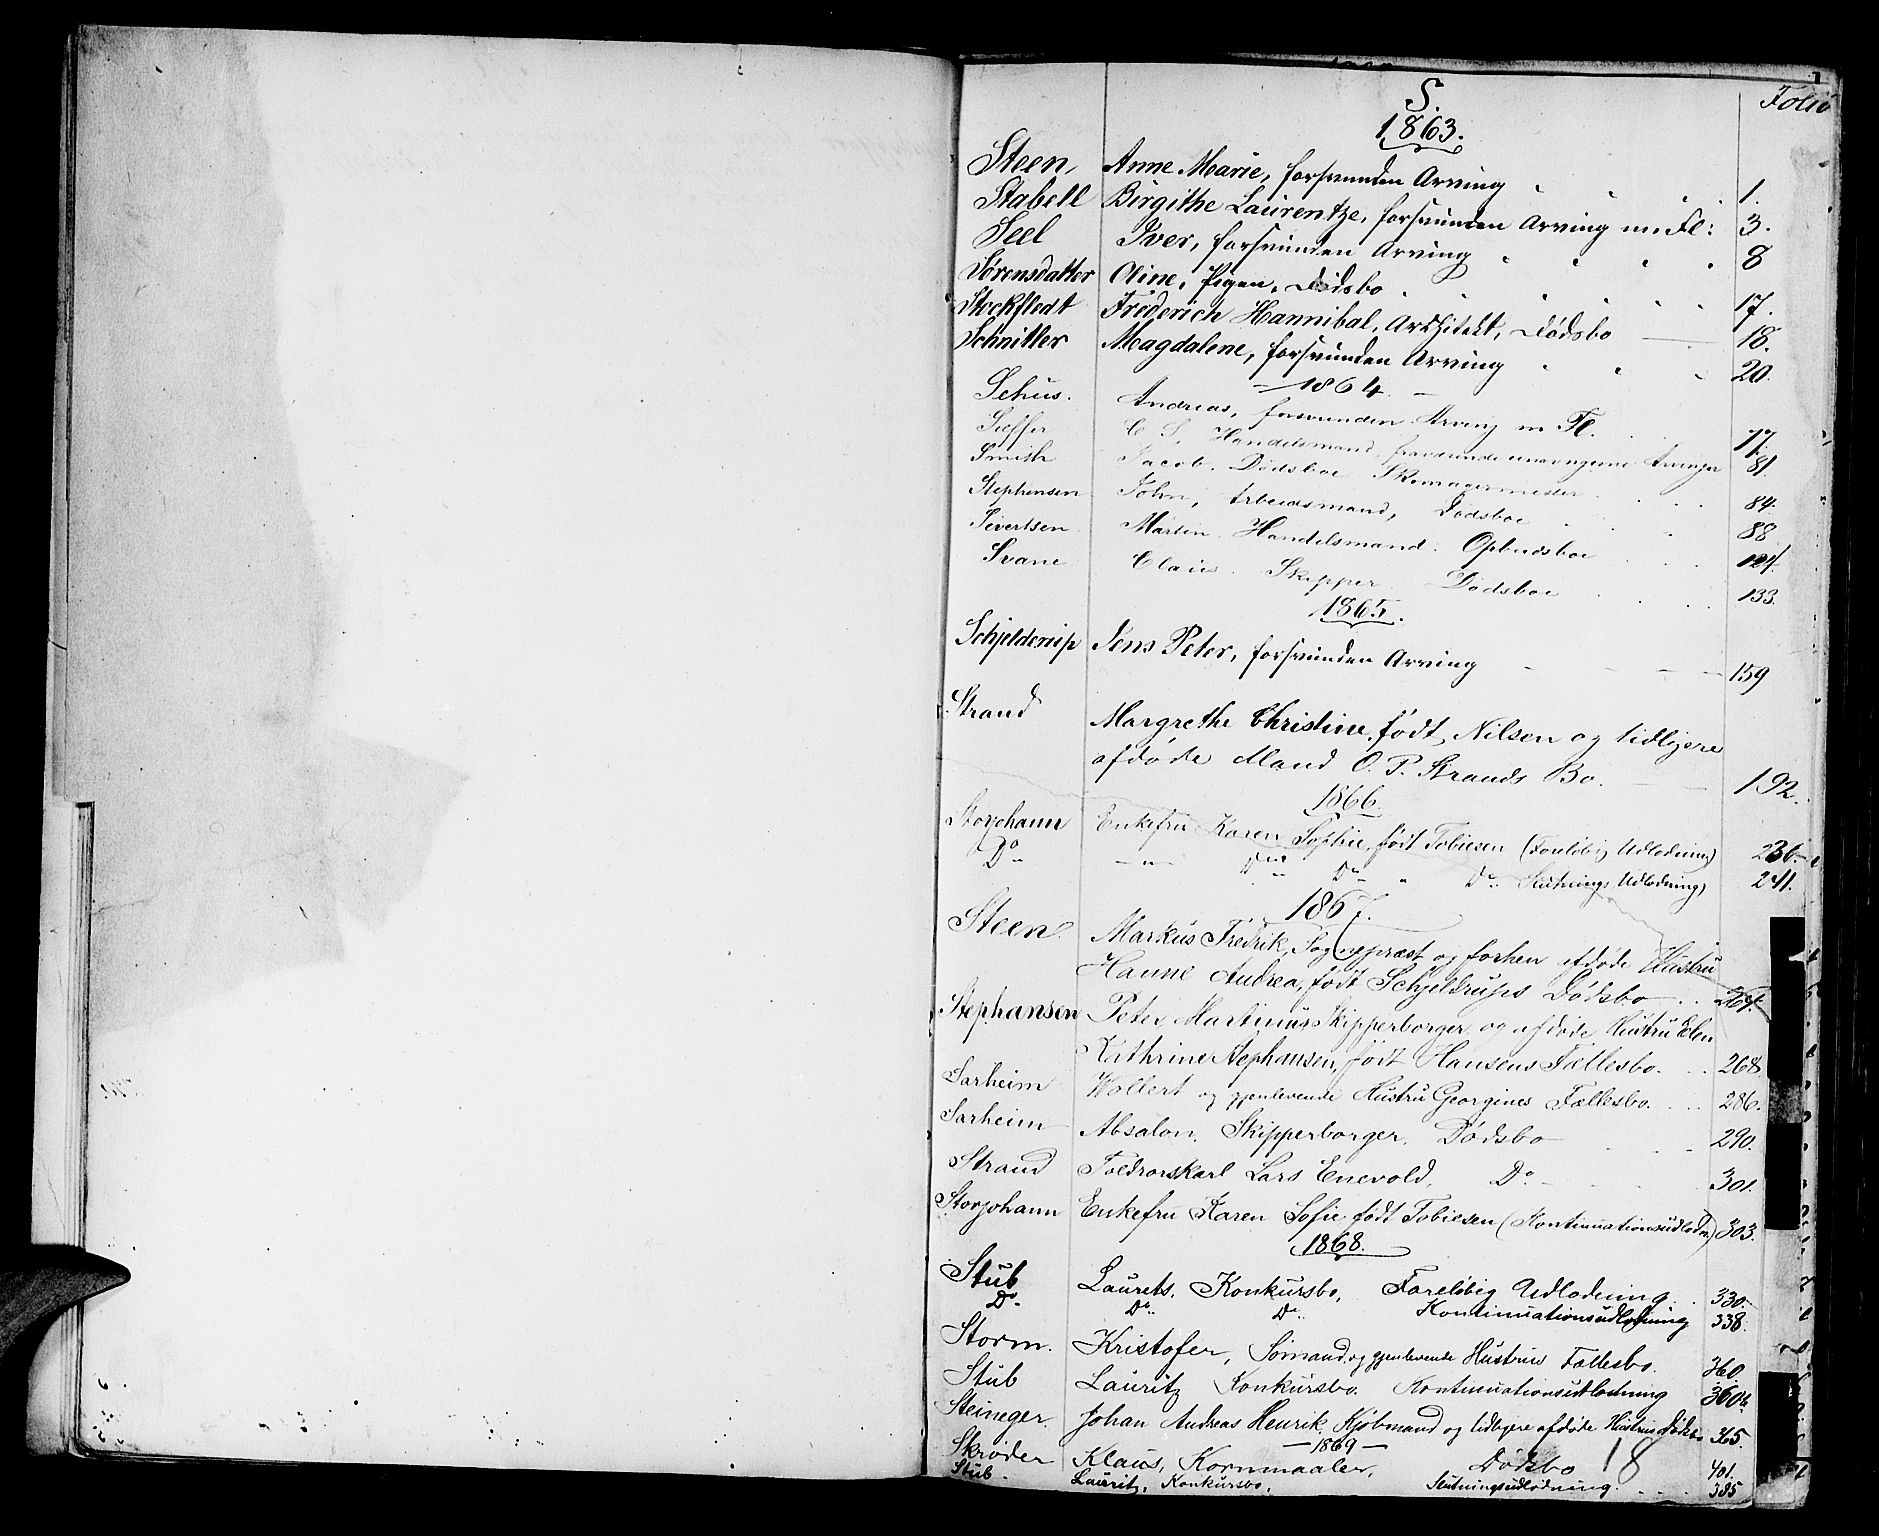 S. Folio
1863.
Steen, Anne Marie, forsvunden Arving 1.
Stabell Birgithe Laurentze, forsvunden Arving m. Fl: 3.
Seel Iver, forsvunden Arving 8
Sørensdatter Oline, Pigen, Dødsbo 17.
Stockfledt Friderich Hannibal, Arkhitekt, Dødsbo 18.
Schnitler Magdalene, forsvunden Arving 20.
1864.
Sehus. Andreas, forsvunden Arving m Fl. 77.
Sieffer C. S. Handelsmand, fraværende Arvinger 81.
Smith Jacob. Dødsboe Skomagermester 84.
Stephensen John, Arbeidsmand, Dødsboe 88
Sivertsen Martin. Handelsmand. Opbudsboe 124.
Svane Claus. Skipper. Dødsboe 133.
1865.
Schjelderup Jens Peter, forsvunden Arving 159
Strand Margrethe Christine, født Nilsen og tidligere
afdøde Mand O. P. Strands Bo. 192.
1866.
Storjohann Enkefru Karen Sophie, født Tobiesen (Foreløbig Udlodning) 236.
Do " Do Do " Do Slutnings Udlodning) 241.
1867.
Steen. Markus Fredrik, Sognepræst og forhen afdøde Hustru
Hanne Andrea, født Schjeldrups Dødsbo 264.
Stephansen Peter Martinus Skipperborger og afdøde Hustru Elen
Kathrine Stephansen, født Hansens Fællesbo. 268.
Sarheim Wollert og gjenlevende Hustru Georgines Fællesbo. 286.
Sarheim Absalon, Skipperborger. Dødsbo 290.
Strand Toldrorskarl Lars Enevold, Do 301.
Storjohann Enkefru Karen Sofie født Tobiesen (Kontinuationsudlodn) 303.
1868.
Stub Laurets, Konkursbo, Foreløbig Udlodning 330.
Do. Do. Do. Kontinuationsudlodning 338.
Storm. Kristofer, Sømand, og gjenlevende Hustrues Fællesbo. 360.
Stub Lauritz Konkursbo. Kontinuationsudlodning 360b
Steineger. Johan Andreas Henrik, Kjøbmand og tidligere afdøde Hustrus Dødsbo 365.
—1869—
Skrøder Klaus, Kornmaaler, Dødsbo 401.
Stub. Lauritz, Konkursbo. Slutningsudlodning. 385
18